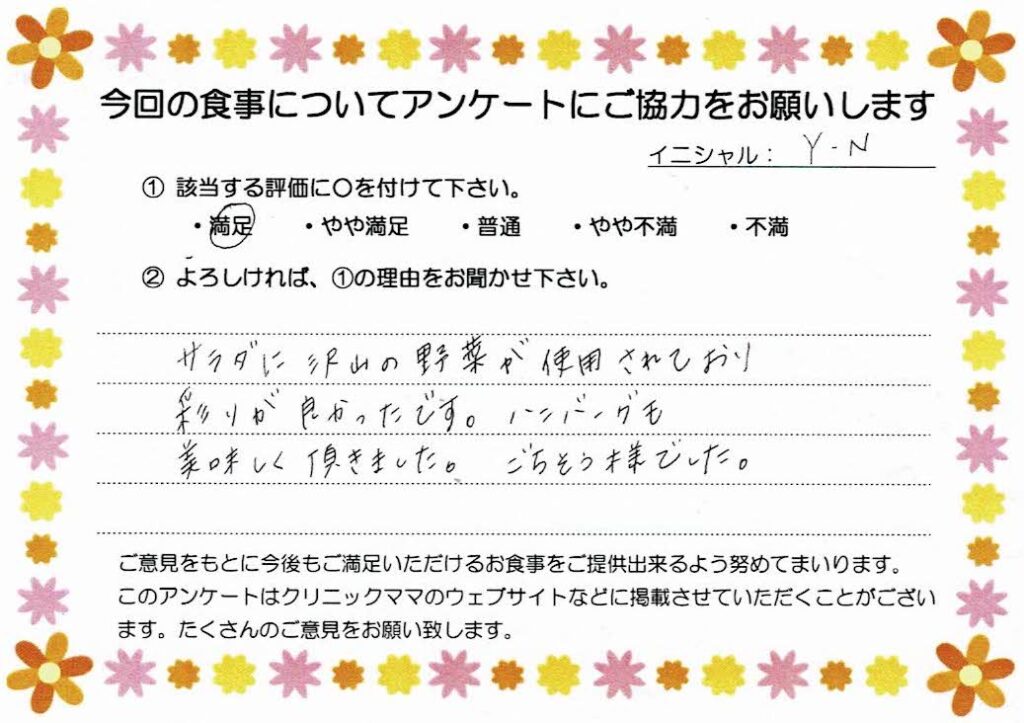 今回の食事についてアンケートにご協力をお願いします
イニシャル： Y-N
① 該当する評価に〇を付けて下さい。
・満足 ・やや満足 ・普通 ・やや不満 ・不満
② よろしければ、①の理由をお聞かせ下さい。
サラダに沢山の野菜が使用されており
彩りが良かったです。ハンバーグも
美味しく頂きました。 ごちそう様でした。
ご意見をもとに今後もご満足いただけるお食事をご提供出来るよう努めてまいります。
このアンケートはクリニックママのウェブサイトなどに掲載させていただくことがござい
ます。たくさんのご意見をお願い致します。